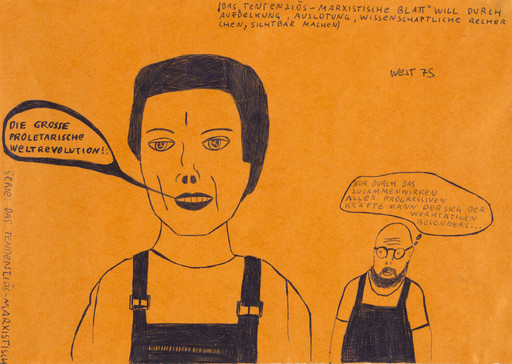 (DAS TENTENZIÖS-MARXISTISCHE BLATT" WILL DURCH
AUFDECKUNG, AUSLOTUNG, WISSENSCHAFTLICHE RECHER
CHEN, SICHTBAR MACHEN)
WEST 75
DIE GROSSE
PROLETARISCHE
WELTREVOLUTION!!
NUR DURCH DAS
ZUSAMMENWIRKEN
ALLER PROGRESSIVEN
KRÄFTE KANN DER SIEG DER
WERKTÄTIGEN
BESONDERS...
SERIE: DAS TENDENZIÖS-MARXISTISCH